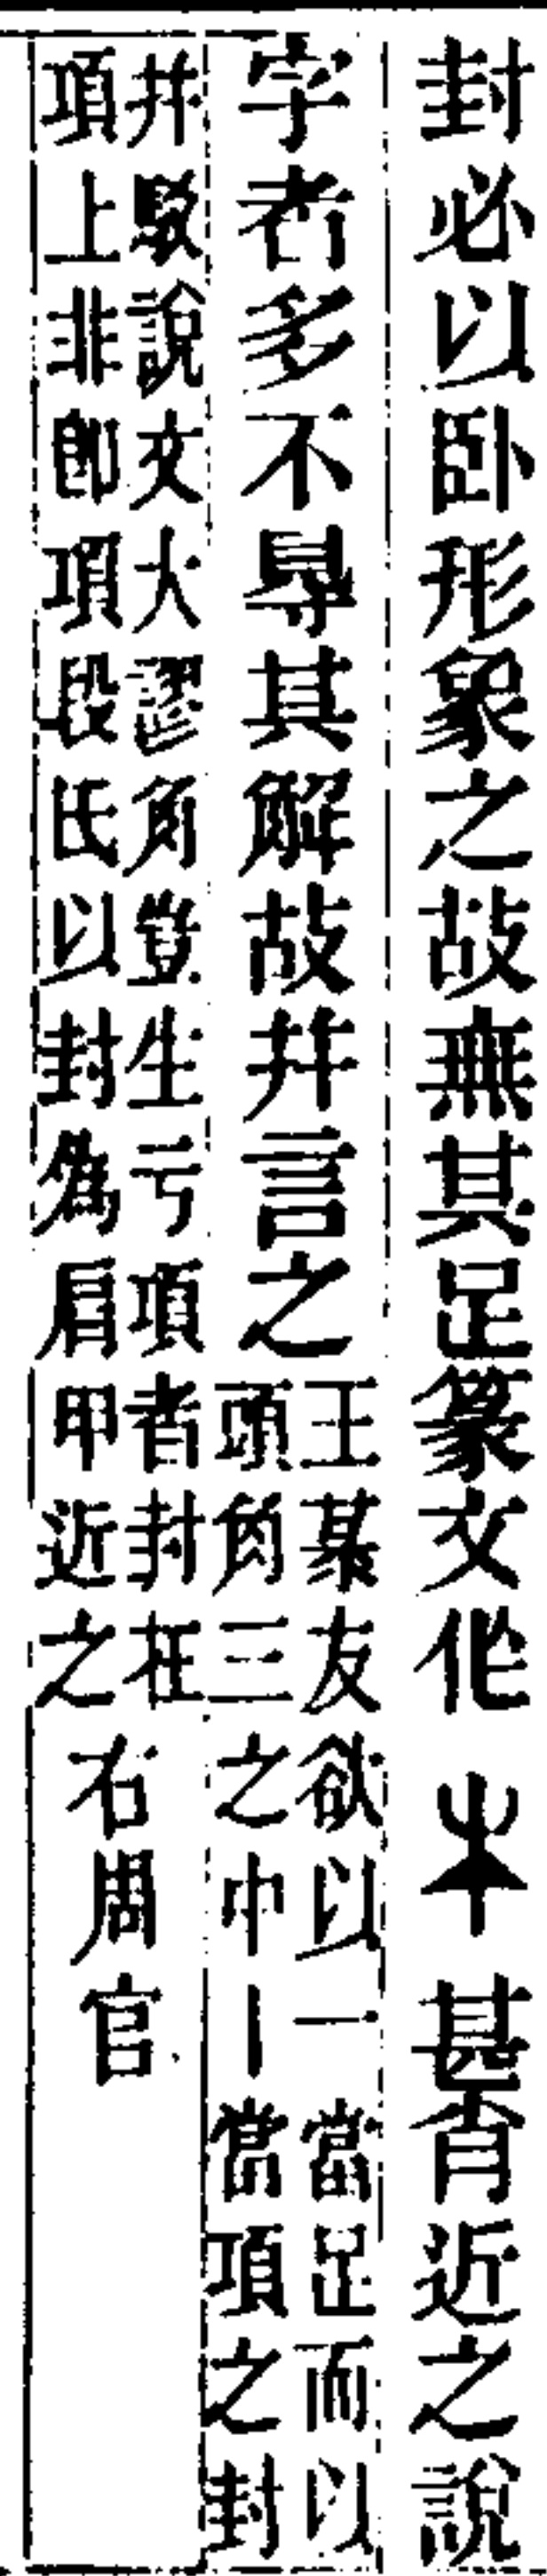 封必以卧形象之故無其足篆文作𤘔甚肖近之說
字者多不㝵其解故并言之
王菉友欲以一當足而以
頭角三之中丨當項之封
并駁說文大謬角豈生亏項者封在
項上非卽項段氏以封為肩甲近之
右周官